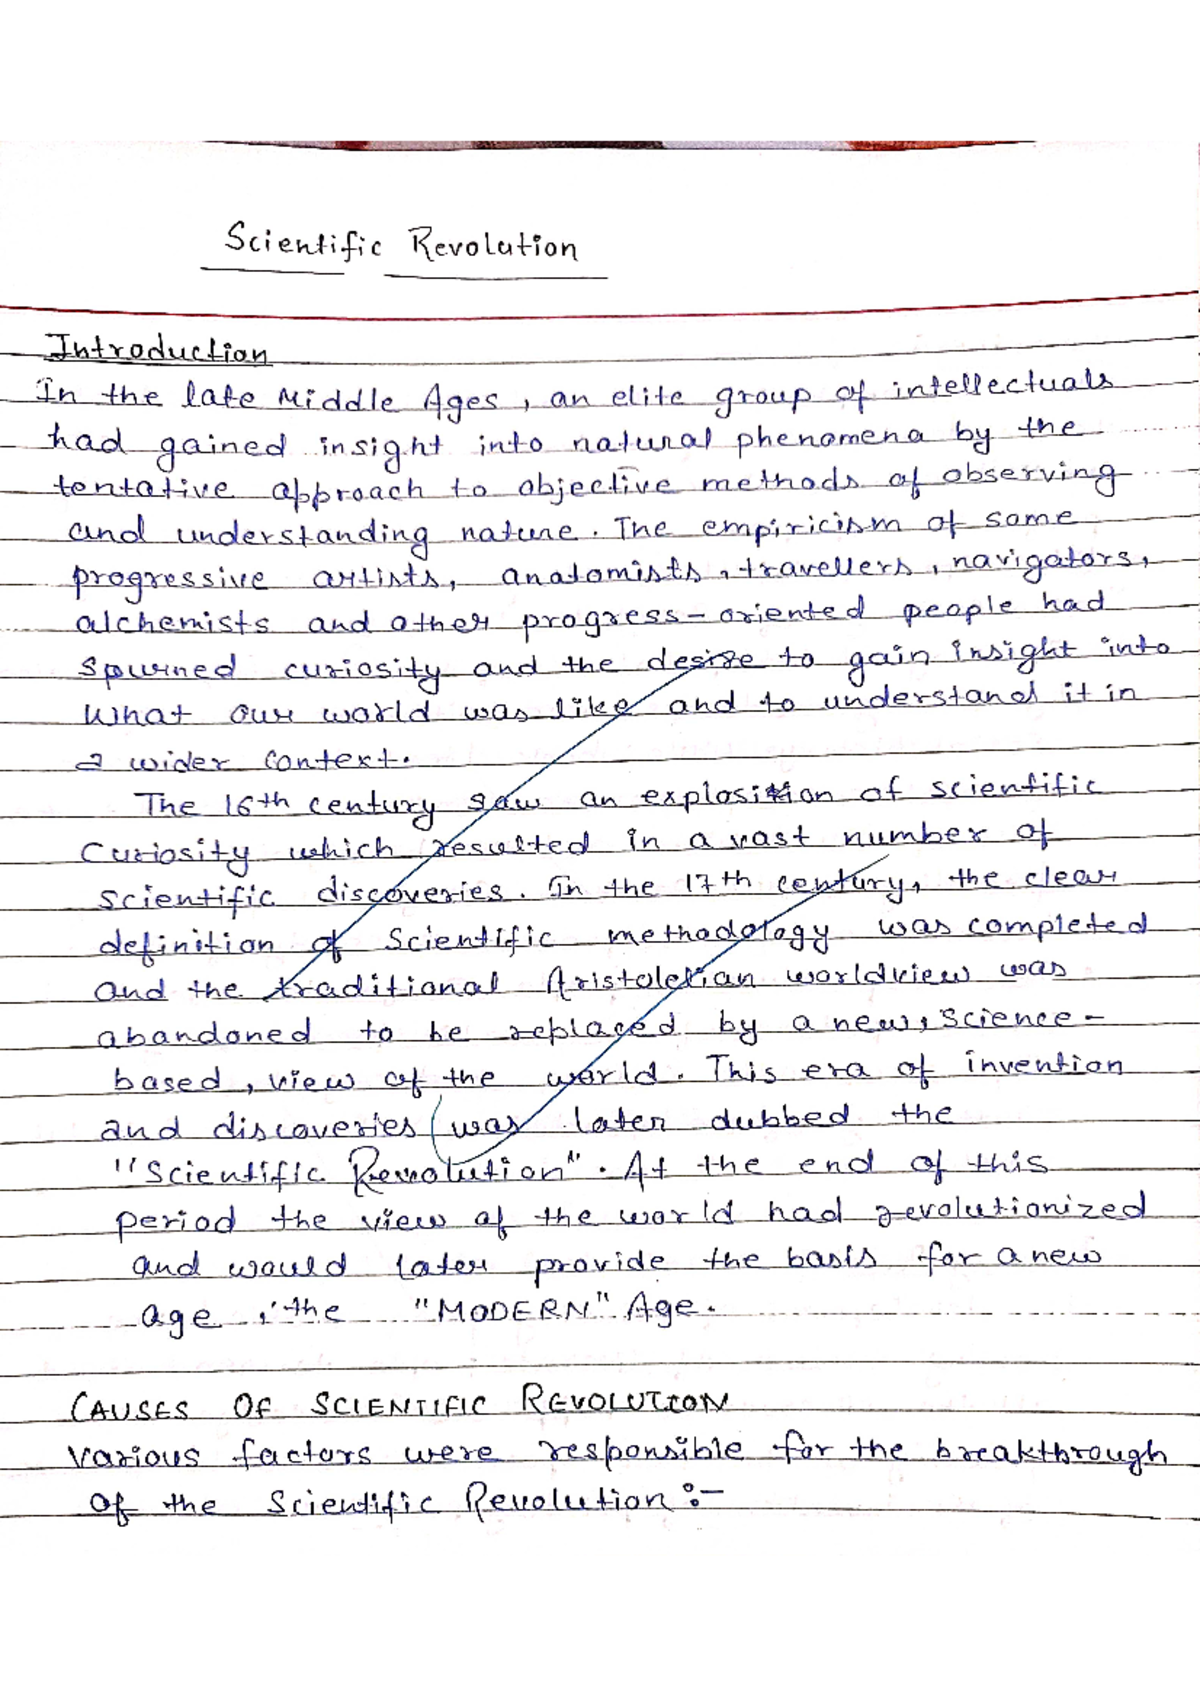 Scientific Revolution
Introduction
In the late Middle Ages, an elite group of intellectuals
had gained insight into natural phenomena by the
tentative approach to objective methods of observing
and understanding nature. The empiricism of some
progressive artists, anatomists, travellers, navigators,
alchemists and other progress-oriented people had
spurned curiosity and the desire to gain insight into
what our world was like and to understand it in
a wider context.
The 16th century saw an explosition of scientific
curiosity which resulted in a vast number of
scientific discoveries. In the 17th century, the clear
definition of scientific methodology was completed
and the traditional Aristolelian worldview was
abandoned to be replaced by a new, science-
based, view of the world. This era of invention
and discoveries was later dubbed the
"Scientific Revolution". At the end of this
period the view of the world had revolutionized
and would later provide the basis for a new
age, the "MODERN" Age.
CAUSES OF SCIENTIFIC REVOLUTION
Various factors were responsible for the breakthrough
of the Scientific Revolution :-